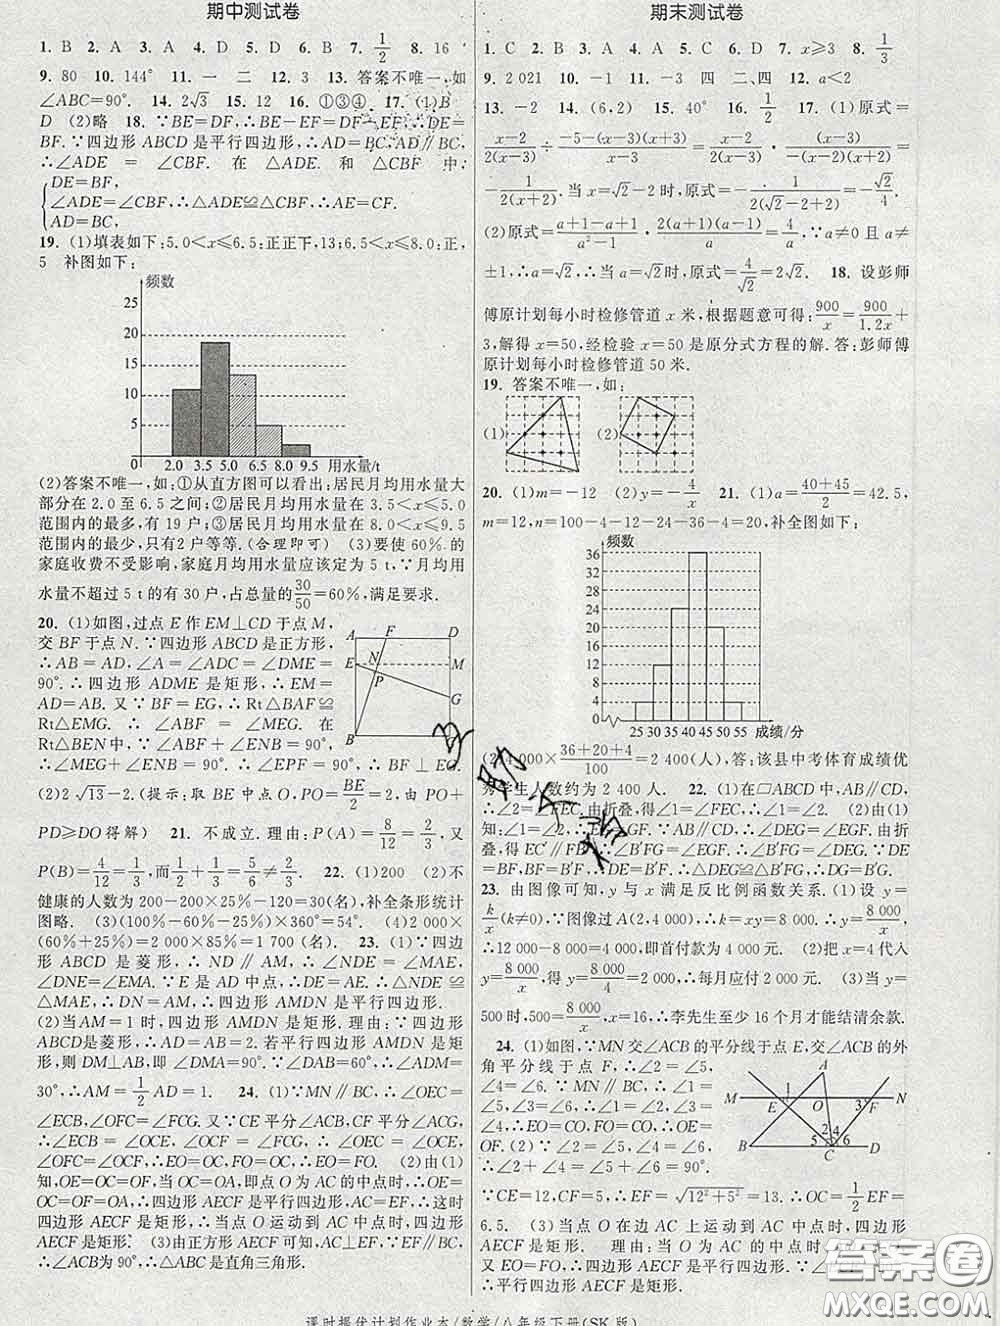 期中测试卷
1. B 2. A 3. A 4. D 5. D 6. B 7. 1/2 8. 16
9. 80 10. 144° 11. 一 二 12. 3 13. 答案不唯一,如
∠ABC=90°. 14. 2√3 15. 12 16. ①③④ 17. (1)B
D (2)略 18. ∵BE=DF,∴BE-EF=DF-EF,∴DE=
BF. ∵四边形 ABCD 是平行四边形,∴AD=BC,AD∥BC,
∴∠ADE = ∠CBF. 在 △ADE. 和 △CBF 中:
DE=BF,
∠ADE=∠CBF,∴△ADE≌△CBF,∴AE=CF.
AD=BC,
19. (1)填表如下:5.0<x≤6.5:正正下,13;6.5<x≤8.0:正,
5 补图如下:
频数
25
20
15
10
5
0
2.0 3.5 5.0 6.5 8.0 9.5 用水量/t
(2)答案不唯一,如:①从直方图可以看出:居民月均用水量大
部分在 2.0 至 6.5 之间;②居民月均用水量在 3.5<x≤5.0
范围内的最多,有 19 户;③居民月均用水量在 8.0<x≤9.5
范围内的最少,只有2户等等.(合理即可) (3)要使 60% 的
家庭收费不受影响,家庭月均用水量应该定为 5 t∵月均用
水量不超过 5 t 的有 30 户,占总量的30/50=60%,满足要求.
20. (1)如图,过点 E 作 EM⊥CD 于点 M,
交 BF 于点 N. ∵四边形 ABCD 是正方形,
∴AB = AD,∠A = ∠ADC = ∠DME =
90°.∴四边形 ADME 是矩形,∴EM =
AD=AB. 又∵BF=EG,∴Rt△BAF≌
Rt△EMG. ∴∠ABF = ∠MEG. 在
Rt△BEN 中,∵∠ABF+∠ENB=90°,
∴∠MEG+∠ENB=90°,∴∠EPF=90°,∴BF⊥EG.
A F D
E N M
P
G
B
(2)2√13-2. (提示:取 BE 中点 O,PO=BE/2=2,由 PO+
PD≥DO得解) 21. 不成立. 理由:P(A)=8/12=2/3,又
P(B)=4/12=1/3,而1/2+1/3≠2/3. 22. (1)200 (2)不
健康的人数为200-200×25%-120=30(名),补全条形统计
图略. (3)(100%-60%-25%)×360°=54°. (4)2 000×
(60%+25%)=2 000×85%=1 700(名). 23. (1)∵四边
形 ABCD 是菱形,∴ND∥AM,∴∠NDE=∠MAE,
∠DNE=∠AME. ∵E 是AD中点,∴DE=AE. ∴△NDE≌
△MAE,∴ND=AM,∴四边形 AMDN 是平行四边形.
(2)当AM=1 时,四边形 AMDN 是矩形. 理由:∵四边形
ABCD是菱形,∴AD=AB=2. 若平行四边形 AMDN 是矩
形,则 DM⊥AB,即 ∠DMA=90°. ∵∠DAB=60°,∴∠ADM=
30°,∴AM=1/2AD=1. 24. (1)∵MN∥BC,∴∠OEC=
∠ECB,∠OFC=∠FCG. 又∵CE 平分∠ACB,CF 平分∠ACG,
∴∠OCE=∠ECB,∠OCF=∠FCG,∴∠OEC=∠OCE,
∠OFC=∠OCF,∴EO=OC,OF=OC,∴EO=FO. (2)由(1)
知,EO=CO=FO,当 OC=OA,即点 O 为 AC 的中点时,∴OE
=OC=OF=OA,∴四边形 AECF 是平行四边形,AC=EF,∴这时
四边形 AECF 是矩形.∴当点 O 运动到 AC 中点时,四边形
AECF 是矩形. (3)由正方形 AECF 可知,AC⊥EF,又∵EF∥BC,
∴∠ACB=90°,∴△ABC 是直角三角形.
期末测试卷
1. C 2. B 3. B 4. C 5. C 6. D 7. x≥3 8. 1/3
9. 2 021 10. -1 11. -3 四 二、四 12. a<2
13. -2 14. (6,2) 15. 40° 16. 1/2 17. (1)原式=
x-2/2(x-3)÷-5-(x-3)(x+3)/x-3=x-2/2(x-3)·(x-3)/-(x-2)(x+2)=
-1/2(x+2). 当 x=√2-2 时,原式=-1/2(√2-2+2)=-√2/4.
(2)原式=a+1-a+1/a²-1·2(a+1)(a-1)/a=4/a. ∵a≠0 且 a≠
±1,∴a=√2,∴当 a=√2 时,原式=4/√2=2√2. 18. 设彭师
傅原计划每小时检修管道 x 米,根据题意可得:900/x=900/1.2x+
3,解得 x=50,经检验 x=50 是原分式方程的解. 答:彭师傅
原计划每小时检修管道 50 米.
19. 答案不唯一,如:
(1) (2)
20. (1)m=-12 (2)y=-4/x 21. (1)a=40+45/2=42.5,
m=12,n=100-4-12-24-36-4=20,补全图如下:
频数
36
32
28
24
20
16
12
8
4
0
25 30 35 40 45 50 55 成绩/分
(2)4 000×36+20+4/100=2 400(人),答:该县中考体育成绩优
秀学生人数约为 2 400 人. 22. (1)在▱ABCD 中,AD∥BC,
∴∠2=∠FEC. 由折叠,得∠1=∠FEC,∴∠1=∠2. (2)由(1)
知:∠1=∠2,∴EG=GF. ∵AB∥DC,∴∠DEG=∠EGF. 由折
叠,得 EC′∥FB′,∴∠B′FG=∠EGF,∴∠B′FG=∠DEG. ∵
DE=BF,BF=B′F,∴DE=B′F,∴△DEG≌△B′FG,∴DG=B′G.
23. 由图像可知,y 与 x 满足反比例函数关系. (1)设 y=
k/x(k≠0). ∵图像过点 A(2,4 000),∴k=xy=8 000,∴y=8 000/x,
∴12 000-8 000=4 000,即首付款为 4 000 元. (2)把 x=4 代入
y=8 000/x=8 000/4=2 000,∴每月应付 2 000 元. (3)当 y=
500时,500=8 000/x,x=16,∴李先生至少 16 个月才能结清余款.
24. (1)如图,∵MN 交∠ACB 的平分线于点 E,交∠ACB 的外
角平分线于点 F,∴∠2=∠5,
∠4=∠6. ∵MN∥BC,∴∠1=
∠5,∠3=∠6,∴∠1=∠2,∠3=
∠4,∴EO=CO,FO=CO,∴OE
=OF. (2)∵∠2=∠5,∠4=∠6,
∴∠2+∠4=∠5+∠6=90°.
A
M E 1 O 3 F N
2 4
5 6
B C D
∵CE=12,CF=5,∴EF=√12²+5²=13. ∴OC=1/2EF=
6.5. (3)当点 O 在边 AC 上运动到 AC 中点时,四边形
AECF 是矩形. 理由:当 O 为 AC 的中点时,∴AO=CO.
又 EO=FO,∴四边形 AECF 是平行四边形.
∴平行四边形 AECF 是矩形.
课时提优计划作业本/数学/八年级下册(SK 版)
答案圈
MXQE.COM